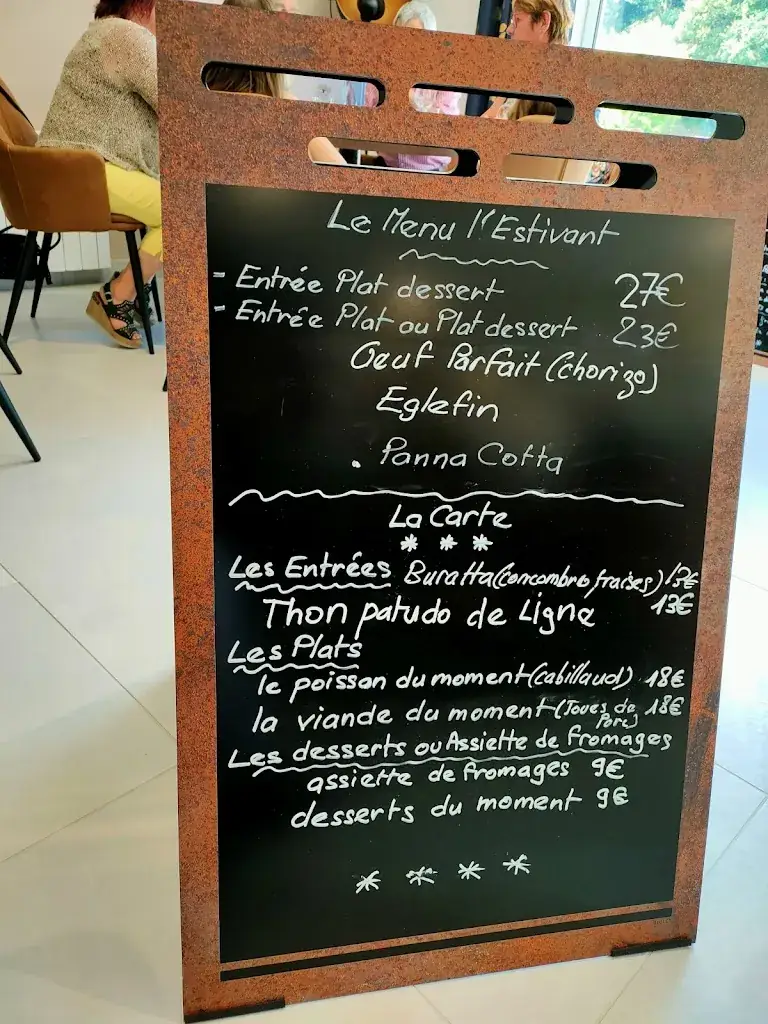 Le Menu l'Estivant
- Entrée Plat dessert 27€
- Entrée Plat ou Plat dessert 23€
Oeuf Parfait (chorizo)
Eglefin
. Panna Cotta
La Carte
* * *
Les Entrées Buratta (concombre fraises) 13€
Thon patudo de Ligne 13€
Les Plats
le poisson du moment (cabillaud) 18€
la viande du moment (Joues de Porc) 18€
Les desserts ou Assiette de fromages
assiette de fromages 9€
desserts du moment 9€
* * * *